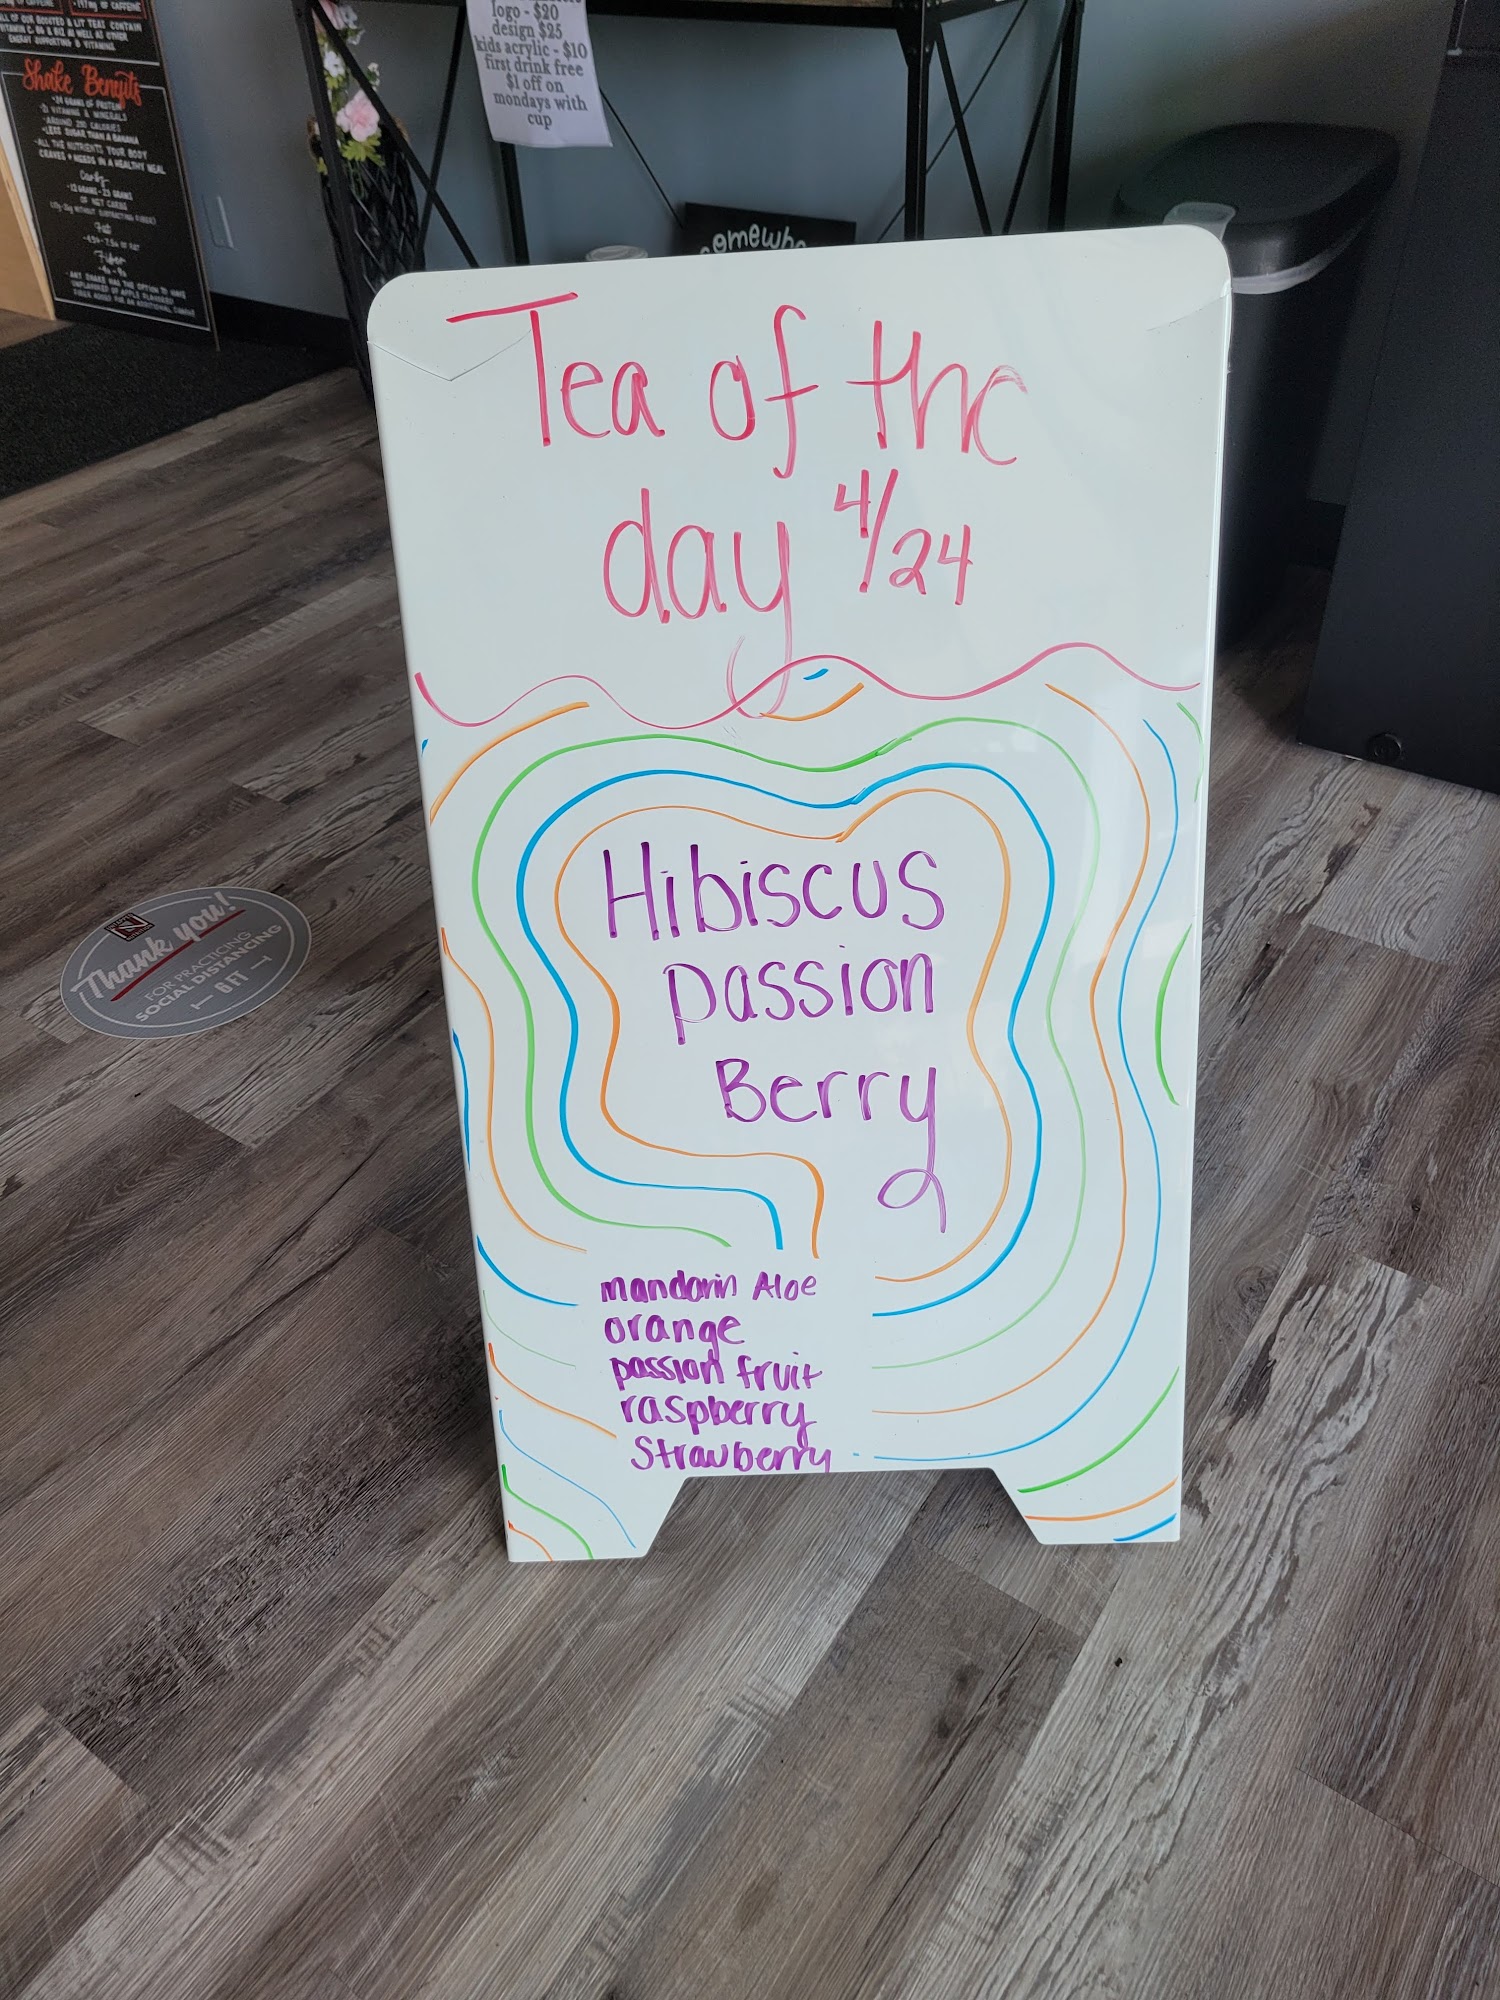 logo - $20
design $25
kids acrylic - $10
first drink free
$1 off on
mondays with
cup
ALL OF OUR BOOSTED & LIT TEAS CONTAIN
VITAMIN C, B6 & B12 AS WELL AS OTHER
ENERGY SUPPORTING B VITAMINS
Shake Benefits
-24 GRAMS OF PROTEIN
-21 VITAMINS & MINERALS
-AROUND 200 CALORIES
-LESS SUGAR THAN A BANANA
-ALL THE NUTRIENTS YOUR BODY
CRAVES & NEEDS IN A HEALTHY MEAL
Carbs
OF NET CARBS
Fat
Fiber
-ANY SHAKE HAS THE OPTION TO HAVE
UNFLAVORED OR APPLE FLAVORED
FIBER ADDED FOR AN ADDITIONAL CHARGE
Tea of the
day 4/24
Hibiscus
passion
Berry
mandarin Aloe
orange
passion fruit
raspberry
Strawberry
Thank you!
FOR PRACTICING
SOCIAL DISTANCING
6 FT